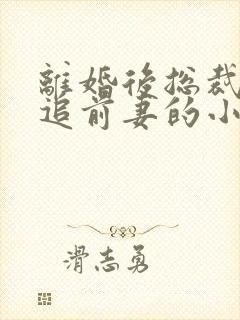 離婚後总裁
追前妻的小
滑志勇